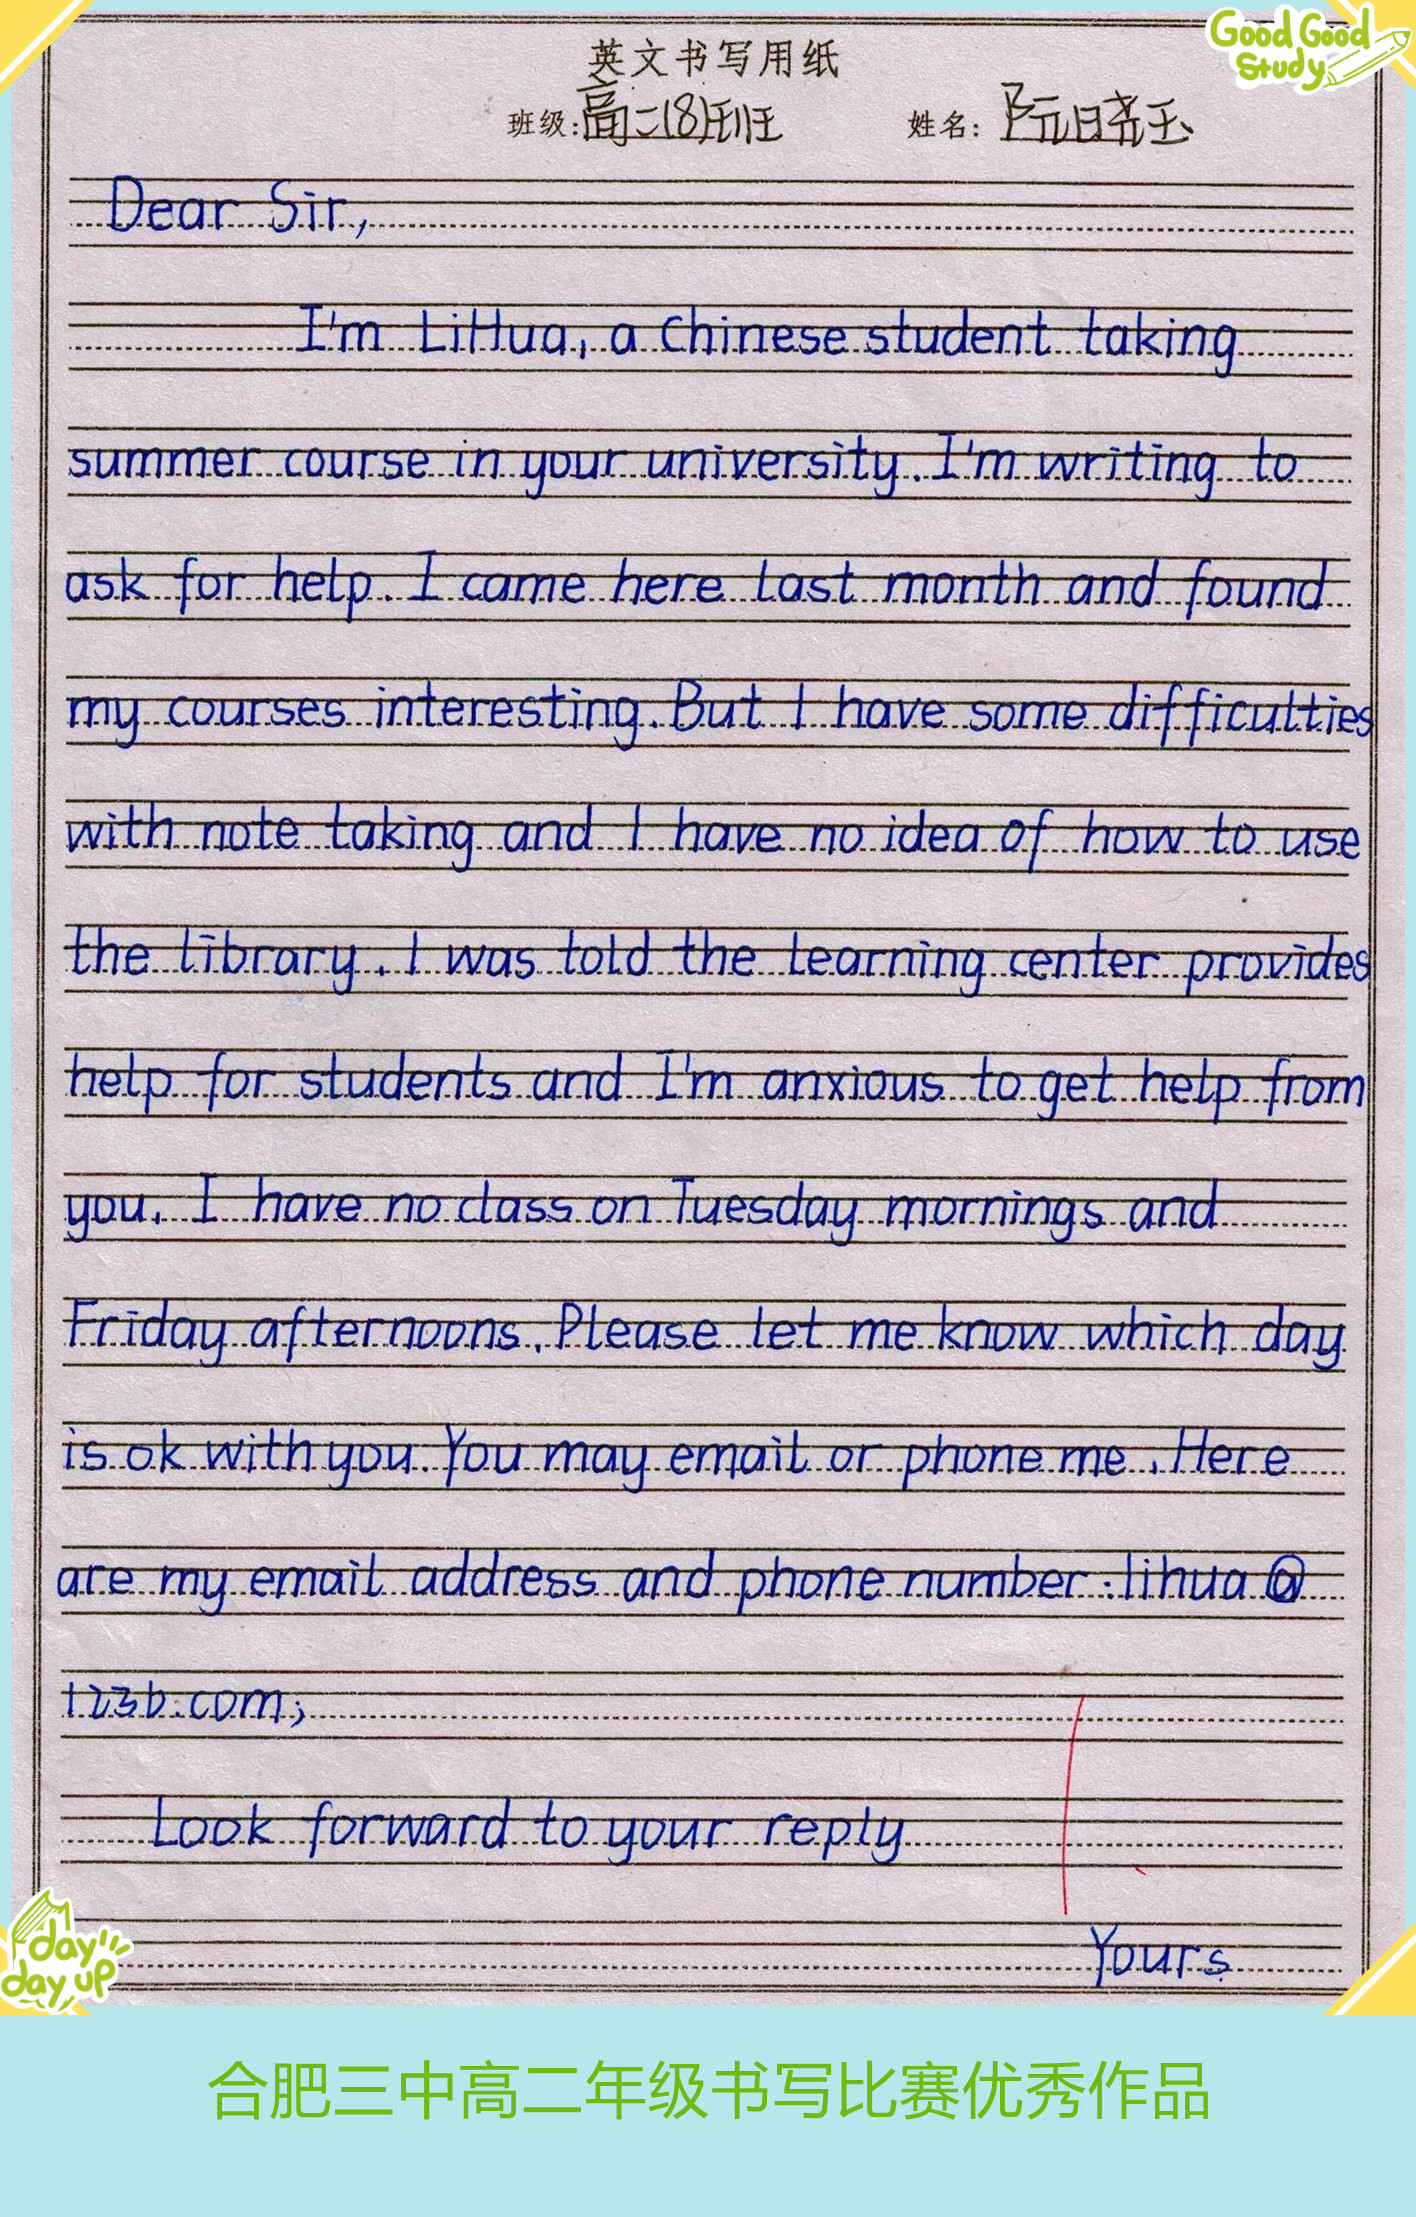 Good Good
Study
英文书写用纸
班级:高二(8)班 姓名:阮晓玉
Dear Sir,
I'm LiHua, a Chinese student taking
summer course in your university. I'm writing to
ask for help. I came here last month and found
my courses interesting. But I have some difficulties
with note taking and I have no idea of how to use
the library. I was told the learning center provides
help for students and I'm anxious to get help from
you. I have no class on Tuesday mornings and
Friday afternoons. Please let me know which day
is ok with you. You may email or phone me. Here
are my email address and phone number: lihua@
123b.com;
Look forward to your reply
Yours
day
day up
合肥三中高二年级书写比赛优秀作品